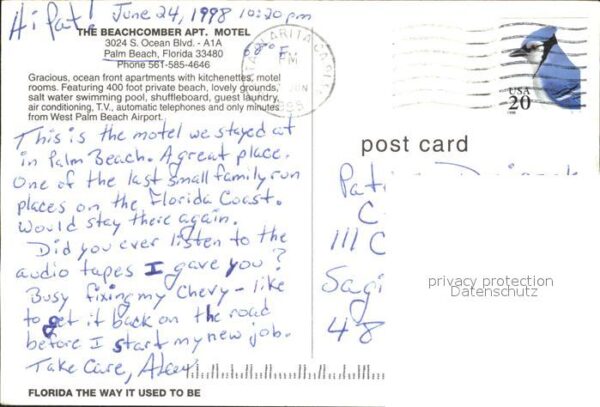 Hi Pat! June 24, 1998 10:20 pm
68° F
THE BEACHCOMBER APT. MOTEL
3024 S. Ocean Blvd. - A1A
Palm Beach, Florida 33480
Phone 561-585-4646
Gracious, ocean front apartments with kitchenettes, motel
rooms. Featuring 400 foot private beach, lovely grounds,
salt water swimming pool, shuffleboard, guest laundry,
air conditioning, T.V., automatic telephones and only minutes
from West Palm Beach Airport.
This is the motel we stayed at
in Palm Beach. A great place.
One of the last small family run
places on the Florida Coast.
Would stay there again.
Did you ever listen to the
audio tapes I gave you?
Busy fixing my Chevy - like
to get it back on the road
before I start my new job.
Take Care,
FLORIDA THE WAY IT USED TO BE
PM
JUN
USA
20
post card
Pat
C
111 C
Sagi
48
privacy protection
Datenschutz